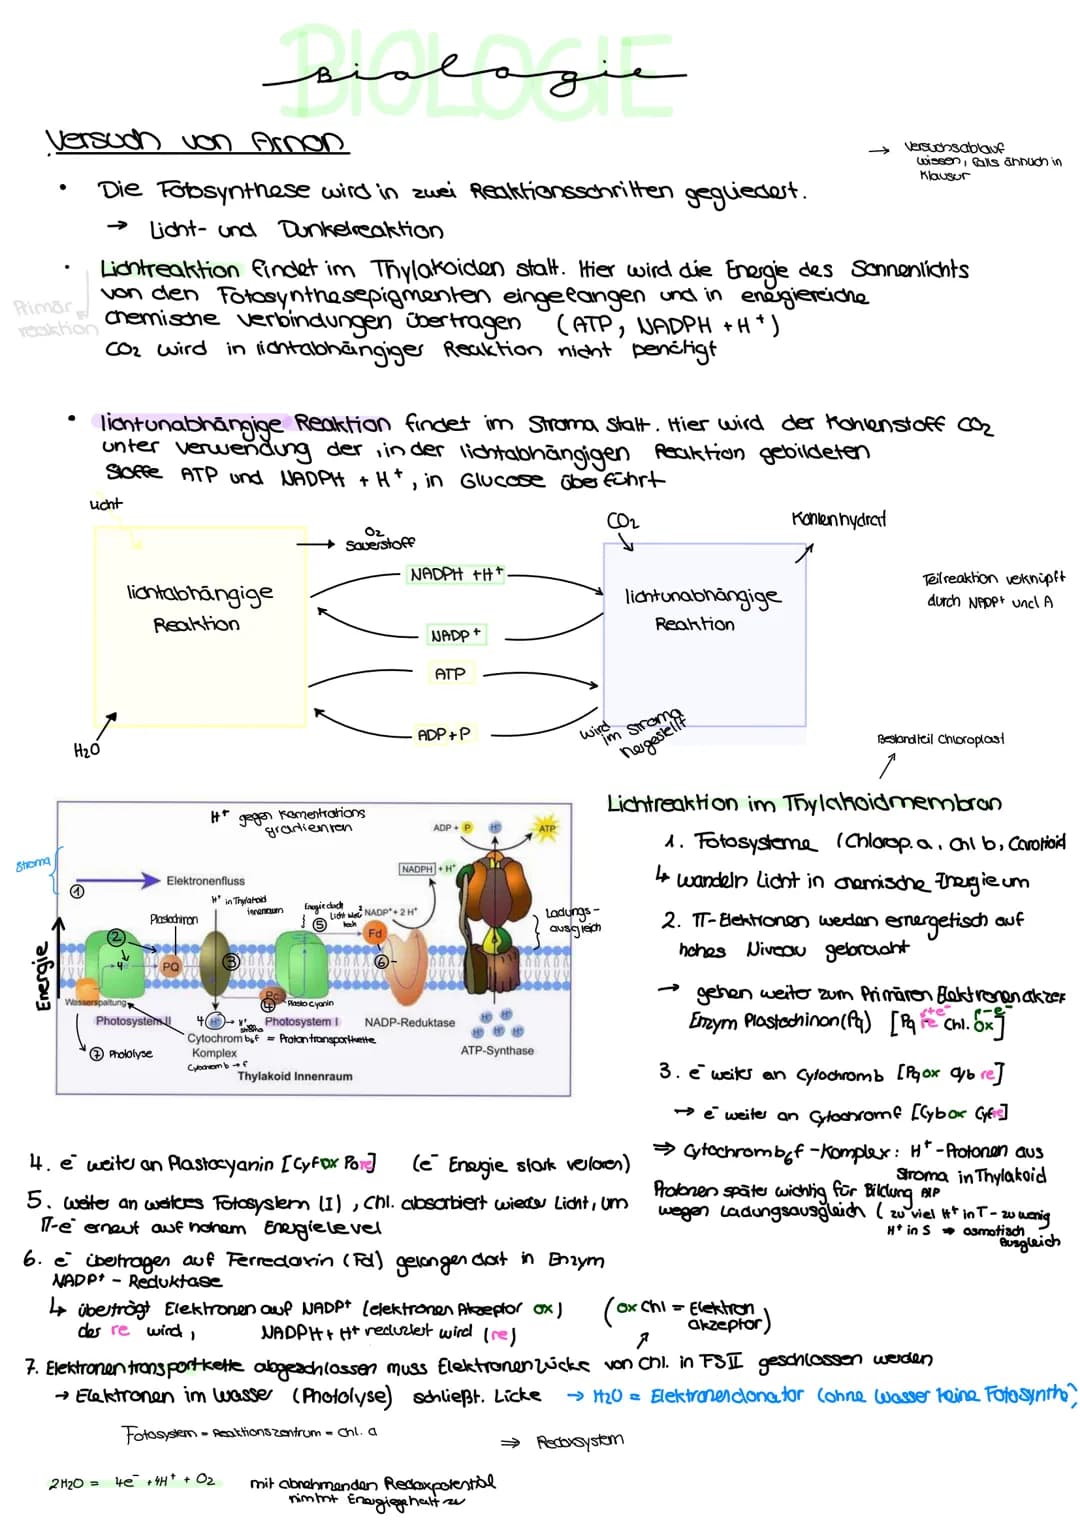 BIOLOGIE
Biologie
Versuch von Arnon
→ Versuchsablauf
wissen, falls ähnlich in
Klausur
• Die Fotosynthese wird in zwei Reaktionsschritten gegliedert.
→ Licht- und Dunkelreaktion
• Lichtreaktion findet im Thylakoiden statt. Hier wird die Energie des Sonnenlichts
von den Fotosynthesepigmenten eingefangen und in energiereiche
chemische Verbindungen übertragen (ATP, NADPH + H⁺)
CO₂ wird in lichtabhängiger Reaktion nicht penötigt
Primär
reaktion
• lichtunabhängige Reaktion findet im Stroma statt. Hier wird der Kohlenstoff CO₂
unter Verwendung der, in der lichtabhängigen Reaktion gebildeten
Stoffe ATP und NADPH + H⁺, in Glucose überführt
Licht
O₂
Sauerstoff
CO₂
Kohlenhydrat
lichtabhängige
Reaktion
NADPH + H⁺
NADP⁺
ATP
ADP + P
lichtunabhängige
Reaktion
Teilreaktion verknüpft
durch NADP⁺ und A
H₂O
wird
im Stroma
hergestellt
Bestandteil Chloroplast
H⁺ gegen
gradienten
Stroma
①
Elektronenfluss
ADP + P
H⁺
ATP
NADPH + H⁺
H⁺ in Thylakoid
innenraum
⑤
NADP⁺ + 2 H⁺
Fd
Ladungs-
ausgleich
Energie
②
4
PQ
③
⑥
Wasserspaltung
Photosystem II
4 H⁺
PC
④ Plastocyanin
Photosystem I
NADP-Reduktase
H⁺ H⁺
H⁺ H⁺ H⁺
ATP-Synthase
⑦ Photolyse
Cytochrom b₆f = Protontransportkette
Komplex
Cytochrom b → f
Thylakoid Innenraum
Lichtreaktion im Thylakoidmembran
1. Fotosysteme (Chlorop. a, Chl b, Carotioid
↳ wandeln Licht in chemische Energie um
2. π-Elektronen werden energetisch auf
hohes Niveau gebracht
→ gehen weiter zum Primären Elektronenakzep
Enzym Plastochinon (Pq) [Pq re Chl. ox]
+e⁻ -e⁻
3. e⁻ weiter an Cytochromb [Pq ox re]
→ e⁻ weiter an Cytochromf [Cyb ox Cyf re]
⇒ Cytochromb₆f-Komplex: H⁺-Protonen aus
Stroma in Thylakoid
Protonen später wichtig für Bildung ATP
wegen Ladungsausgleich (zu viel H⁺ in T - zu wenig
H⁺ in S ⇒ osmotisch
Ausgleich
4. e⁻ weiter an Plastocyanin [Cyf ox re] (e⁻ Energie stark verloren)
5. weiter an weiteres Fotosystem (I), Chl. absorbiert wieder Licht, um
π-e⁻ erneut auf hohem Energielevel
6. e⁻ übertragen auf Ferredoxin (Fd) gelangen dort in Enzym
NADP⁺ - Reduktase
↳ überträgt Elektronen auf NADP⁺ (elektronen Akzeptor ox)
der re wird, NADPH + H⁺ reduziert wird (re)
(ox Chl = Elektron
akzeptor)
7. Elektronentransportkette abgeschlossen muss Elektronenlücke von Chl. in FS II geschlossen werden
→ Elektronen im Wasser (Photolyse) schließt. Lücke → H₂O = Elektronendonator (ohne Wasser keine Fotosynthe
Fotosystem = Reaktionszentrum = Chl. a
⇒ Redoxsystem
2H₂O = 4e⁻ + 4H⁺ + O₂
mit abnehmenden Redoxpotential
nimmt Energiegehalt zu